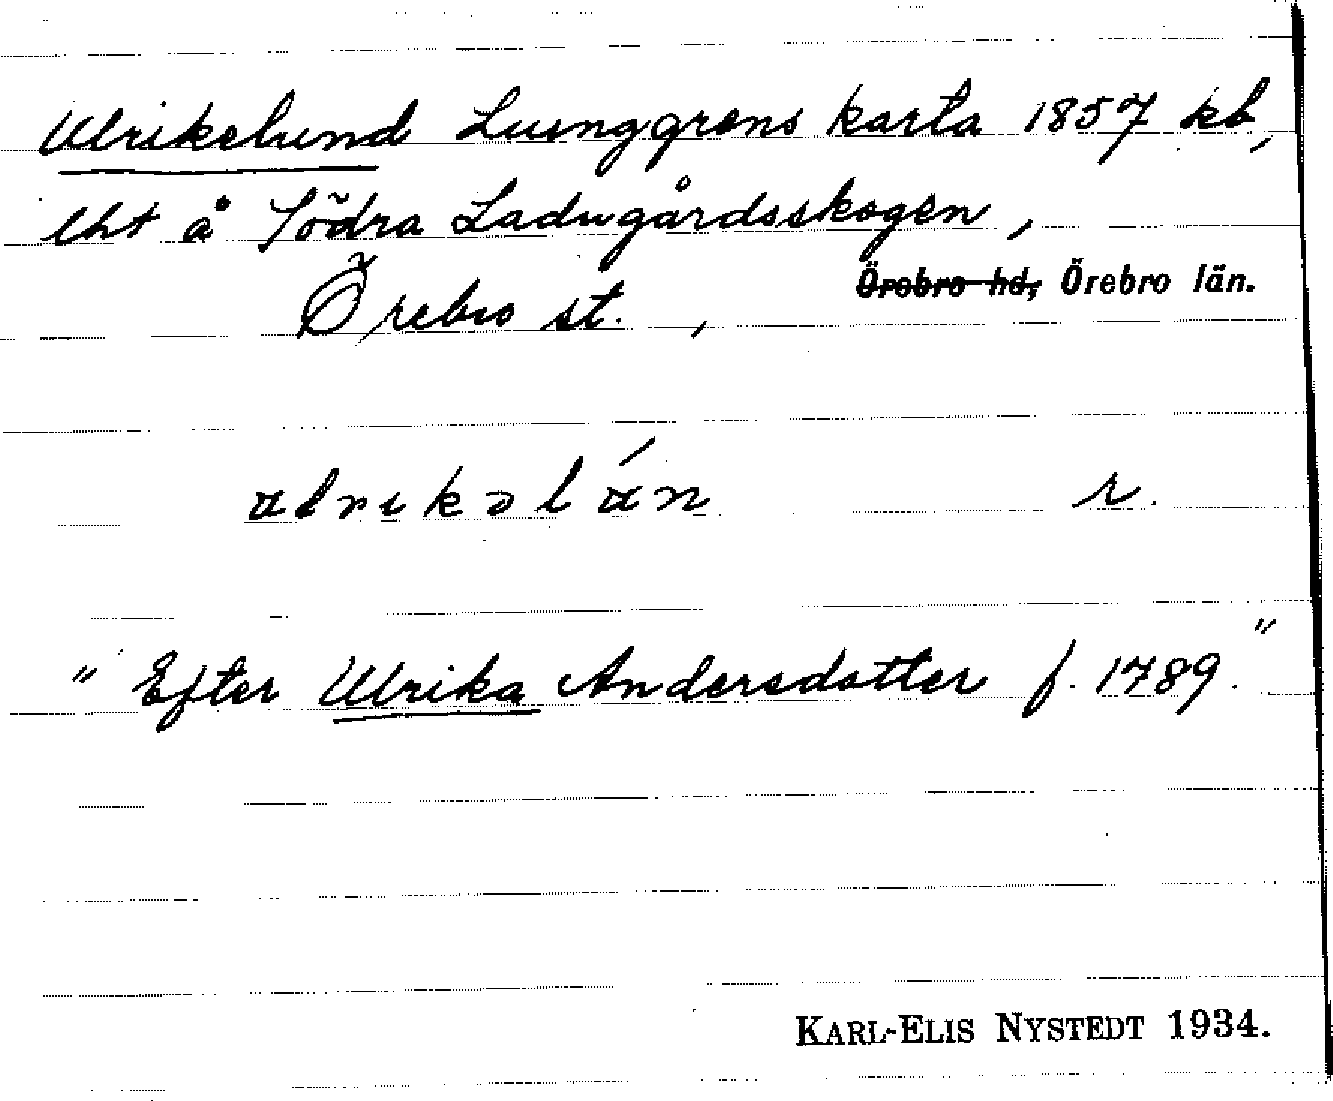 Ulrikelund Ljunggrens karta 1857 kb,
lht å Södra Ladugårdsskogen,
Örebro st., Örebro hd, Örebro län.
r.
" Efter Ulrika Andersdotter f. 1789. "
KARL-ELIS NYSTEDT 1934.